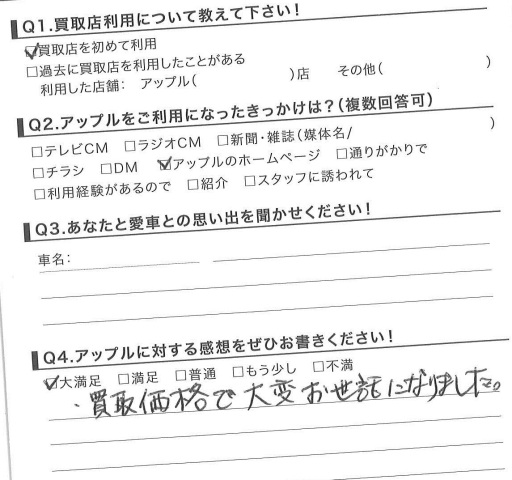 Q1.買取店利用について教えて下さい!
☑買取店を初めて利用
□過去に買取店を利用したことがある
利用した店舗: アップル( )店 その他( )
Q2.アップルをご利用になったきっかけは?(複数回答可)
□テレビCM □ラジオCM □新聞・雑誌(媒体名/ )
□チラシ □DM ☑アップルのホームページ □通りがかりで
□利用経験があるので □紹介 □スタッフに誘われて
Q3.あなたと愛車との思い出を聞かせください!
車名:
Q4.アップルに対する感想をぜひお書きください!
☑大満足 □満足 □普通 □もう少し □不満
・買取価格で大変お世話になりました。